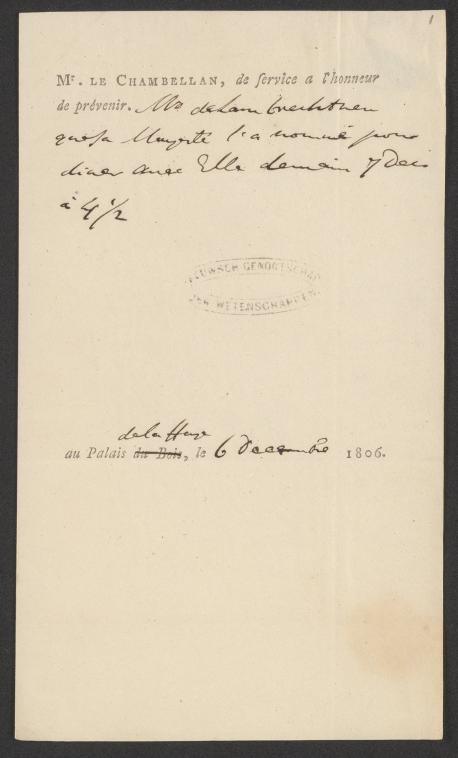 1
Mr. LE CHAMBELLAN, de ſervice a l'honneur
de prévenir. Mr de Lambrechtsen
que sa Majesté l'a nommé pour
diner avec Elle demain 7 Dec
à 4 1/2
ZEEUWSCH GENOOTSCHAP
DER WETENSCHAPPEN.
de la Haye
au Palais du Bois, le 6 Decembre 1806.